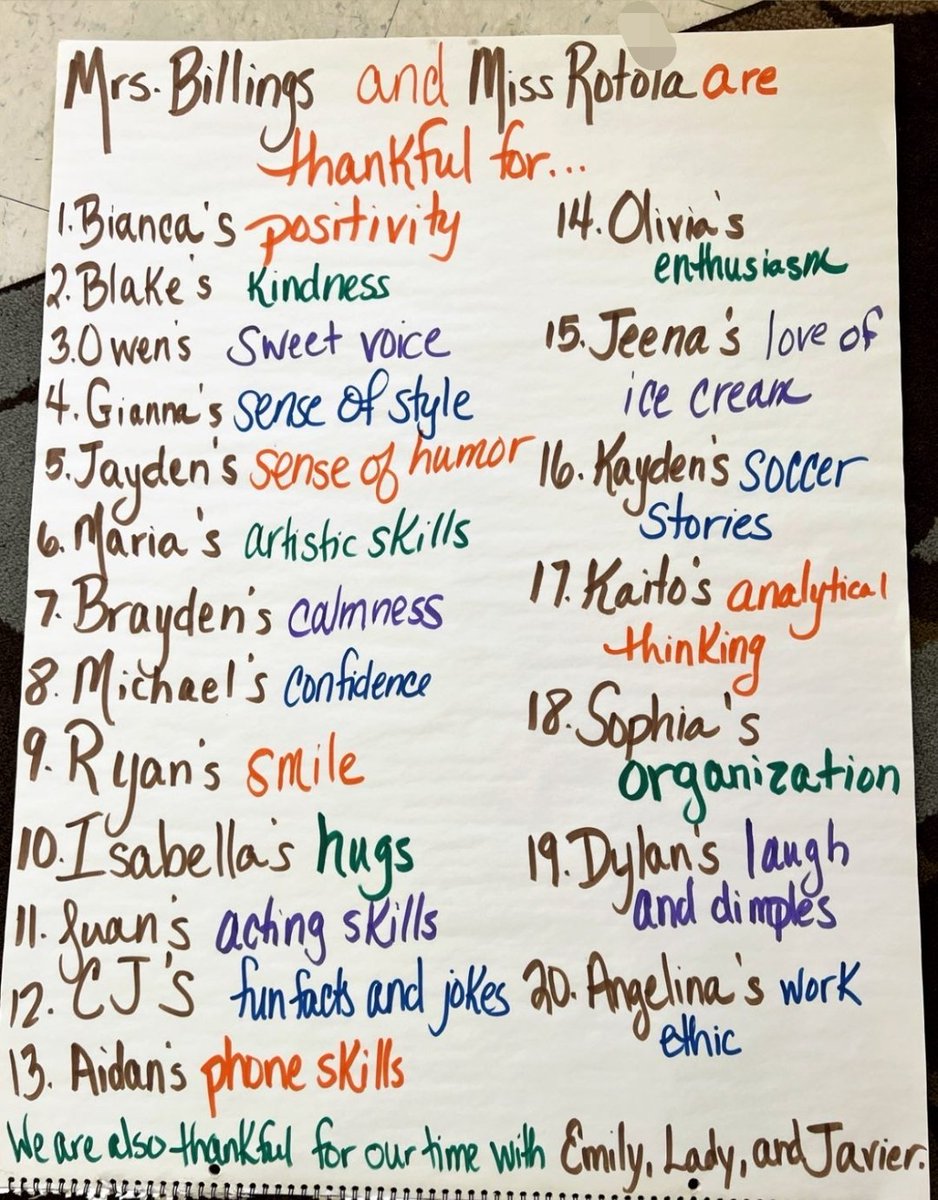 Mrs. Billings and Miss Rotola are
thankful for...
1. Bianca's positivity
2. Blake's kindness
3. Owen's sweet voice
4. Gianna's sense of style
5. Jayden's sense of humor
6. Maria's artistic skills
7. Brayden's calmness
8. Michael's confidence
9. Ryan's smile
10. Isabella's hugs
11. Juan's acting skills
12. CJ's fun facts and jokes
13. Aidan's phone skills
14. Olivia's
enthusiasm
15. Jeena's love of
ice cream
16. Kayden's soccer
stories
17. Kaito's analytical
thinking
18. Sophia's
organization
19. Dylan's laugh
and dimples
20. Angelina's work
ethic
We are also thankful for our time with Emily, Lady, and Javier.